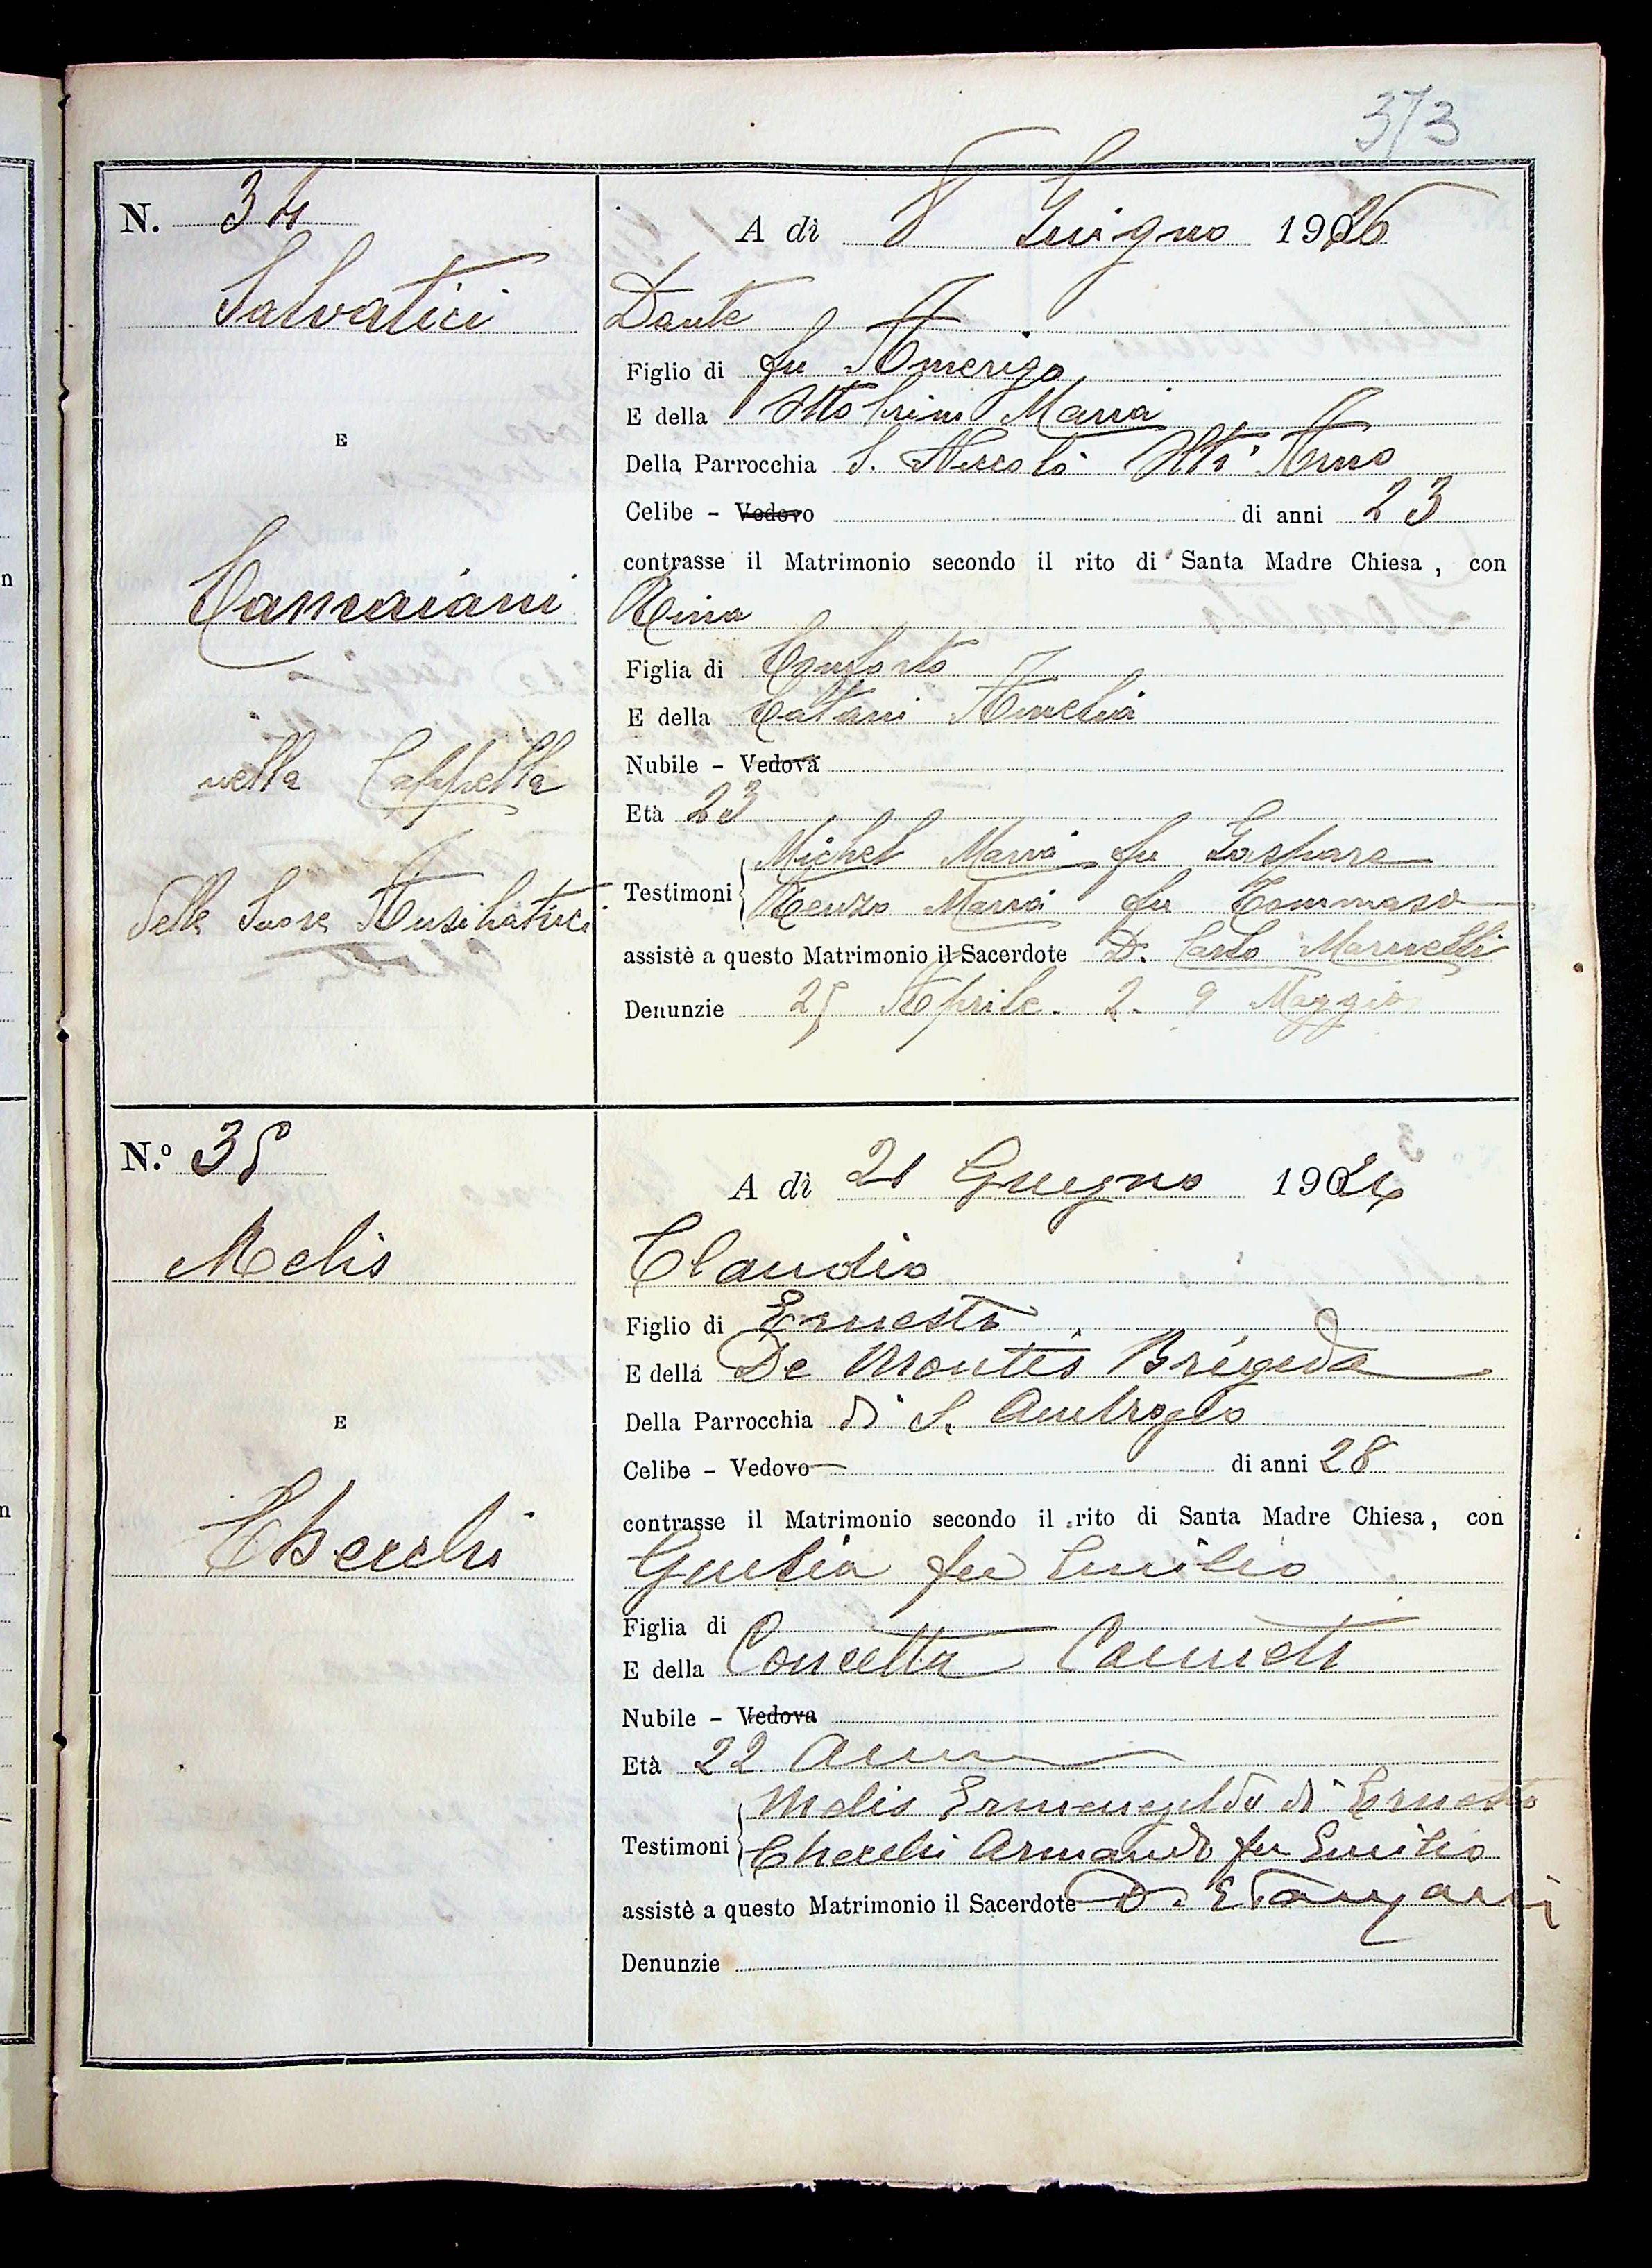 373
N. 34
A dì 8 Giugno 1926
Salvatici
Dante
Figlio di fu Amerigo
E della Ottobrini Maria
E
Della Parrocchia S. Niccolò Oltr'Arno
Celibe - Vedovo di anni 23
contrasse il Matrimonio secondo il rito di Santa Madre Chiesa, con
Camaiani
Rina
Figlia di Conforto
E della Catani Amelia
nella Cappella
Nubile - Vedova
Età 23
delle Suore Ausiliatrici
Testimoni Michel Maria fu Gaspare
Renzo Maria fu Tommaso
assistè a questo Matrimonio il Sacerdote D. Carlo
Denunzie 25 Aprile. 2. 9 Maggio
N.º 35
A dì 21 Giugno 1926
Melis
Claudio
Figlio di Ernesto
E della De Montis Brigida
E
Della Parrocchia di S. Ambrogio
Celibe - Vedovo di anni 28
contrasse il Matrimonio secondo il rito di Santa Madre Chiesa, con
Cherchi
Giulia fu Emilio
Figlia di
E della Concetta
Nubile - Vedova
Età 22 Anni
Testimoni Melis Ermenegildo di Ernesto
Cherchi Armando fu Emilio
assistè a questo Matrimonio il Sacerdote D. E
Denunzie